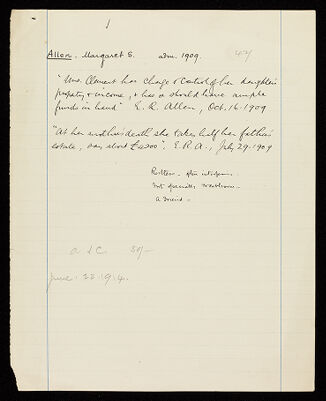 1
Allen. Margaret S. adm. 1909. 42/
"Mrs. Clement has charge & control of her daughter's
property, & income, & has or should have ample
funds in hand" E. R. Allen, Oct. 16. 1909
"At her mother's death she takes half her father's
estate, say about £4000". E. R. A., July 29. 1909
not specially
a friend -
a & c 30/-
June. 23. 1914.